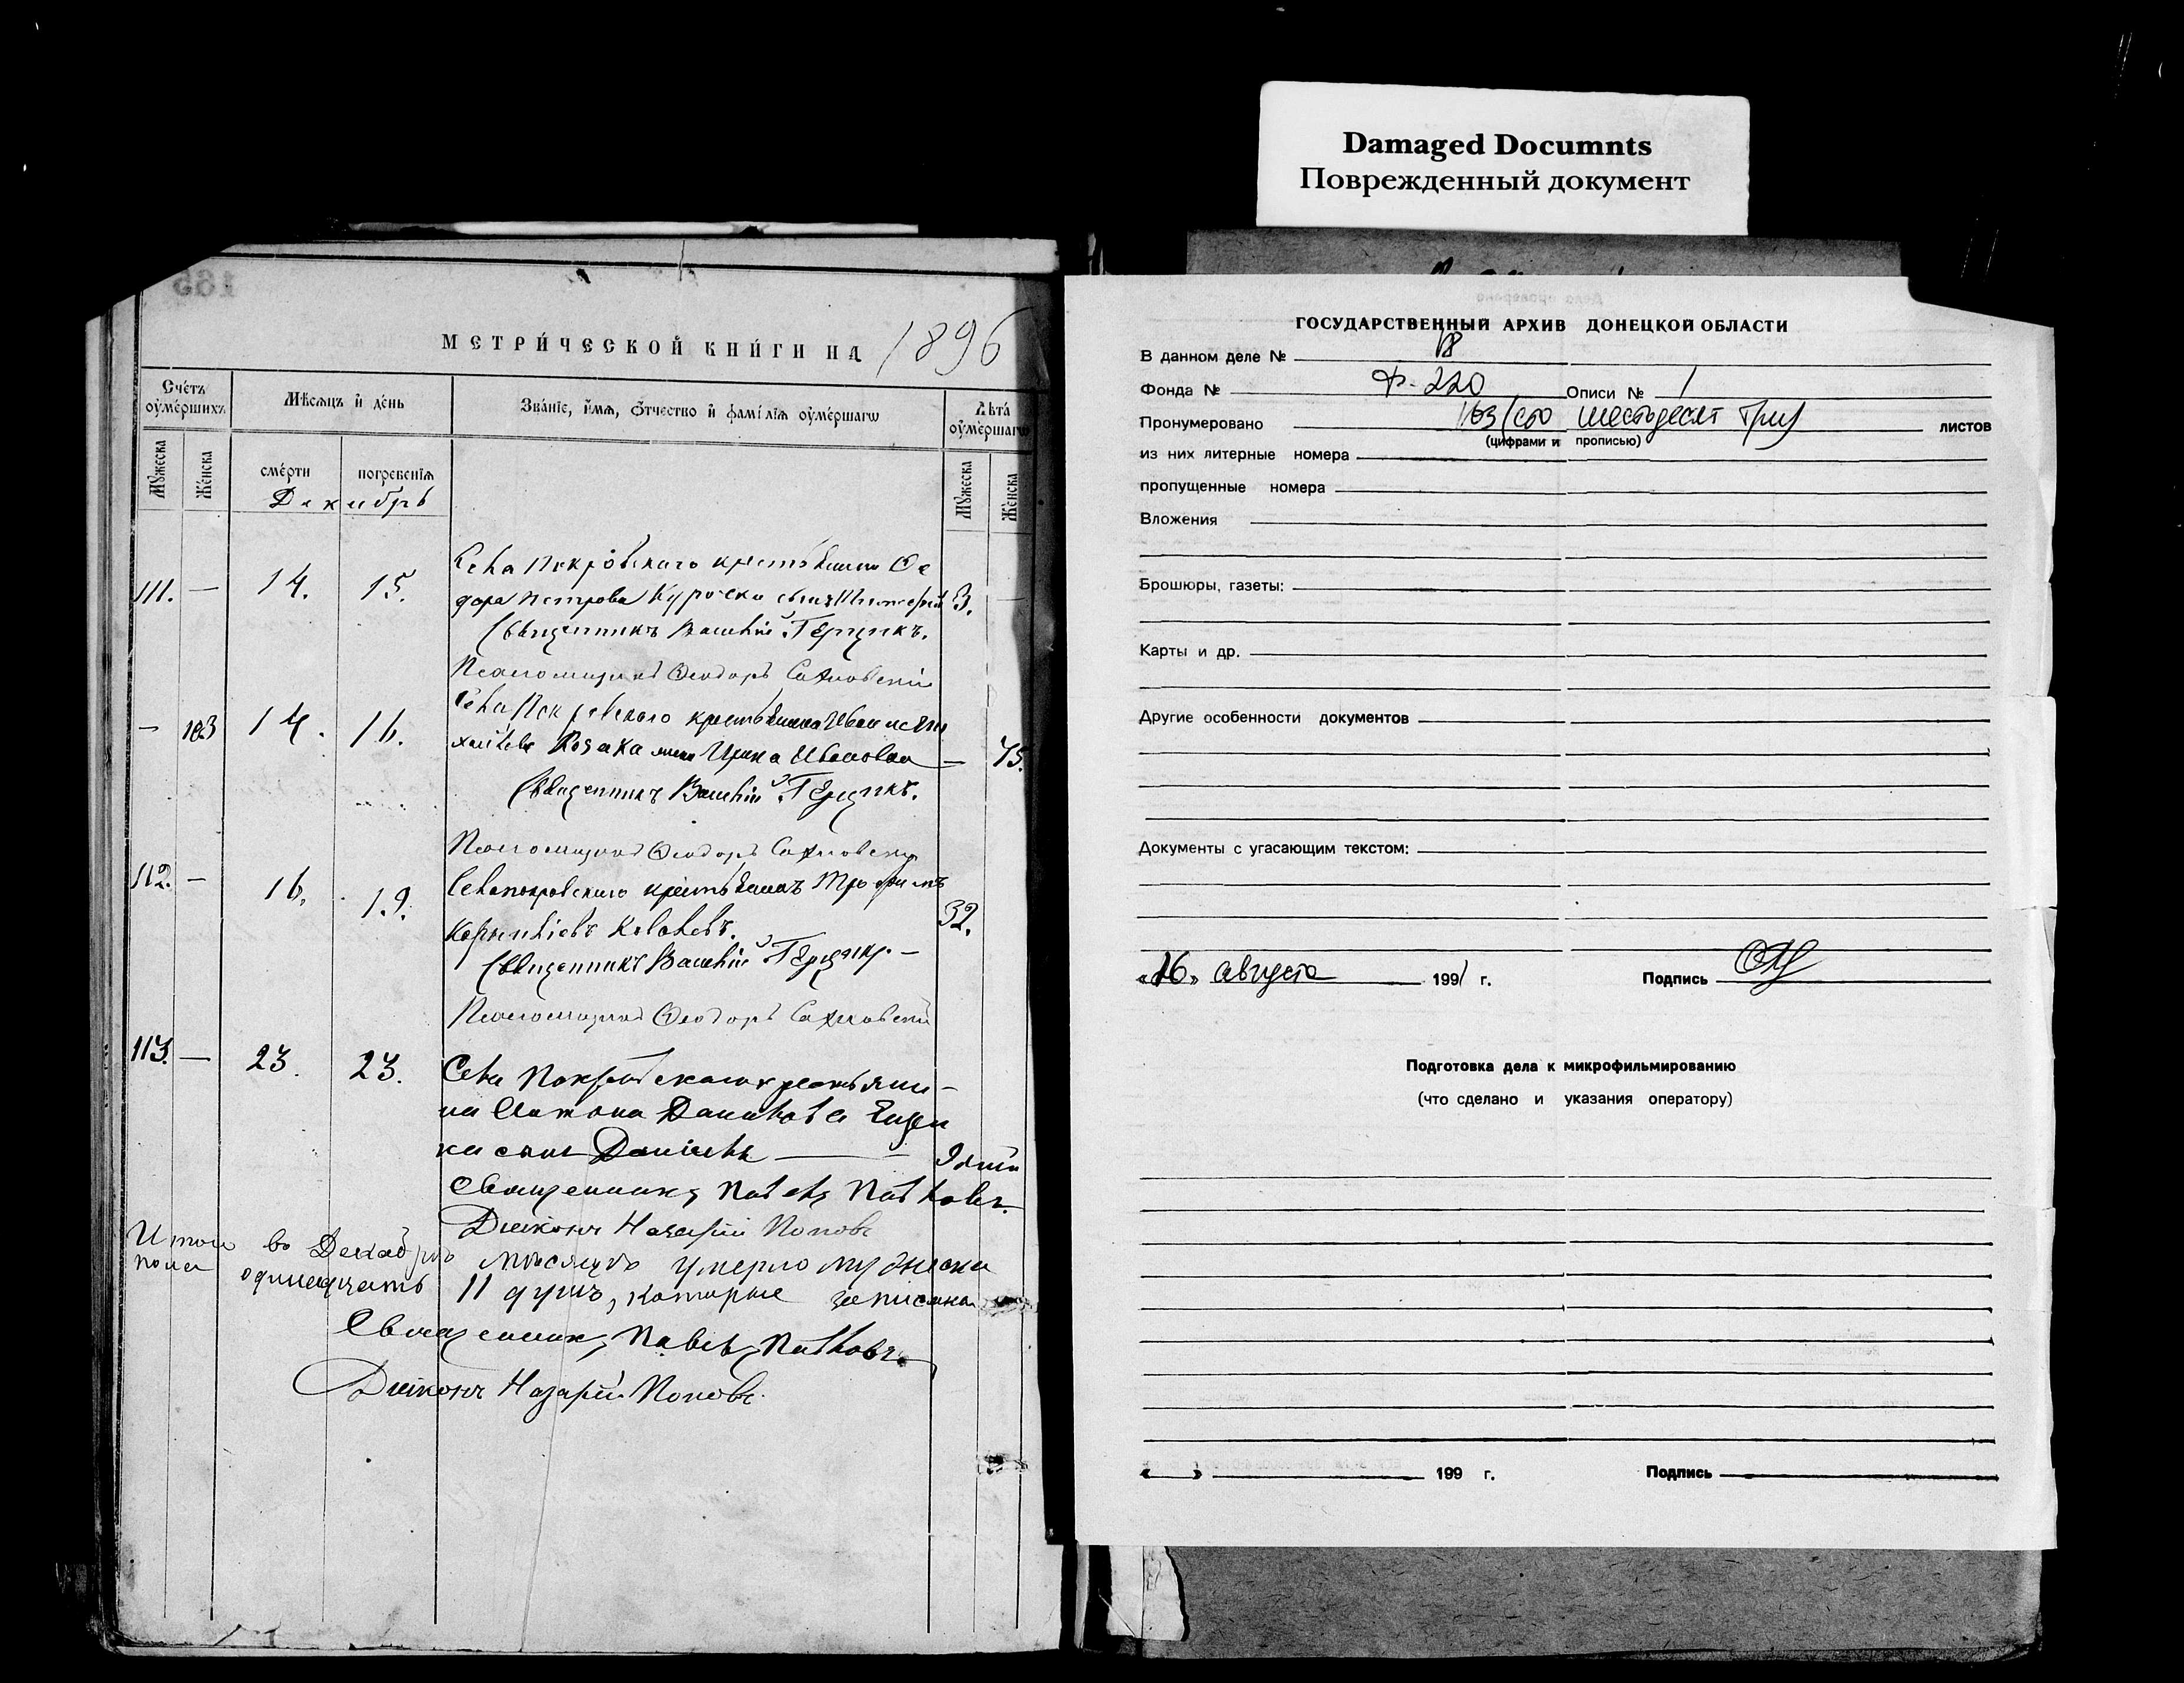 Damaged Documnts
Поврежденный документ
МЕТРИ́ЧЕСКОЙ КНИ́ГИ НА 1896
Сче́тъ ᲂу҆ме́ршихъ
Мѣ́сѧцъ и҆ де́нь
Зва́нїе, и҆́мѧ, ѻ҆́тчество и҆ фамі́лїѧ ᲂу҆ме́ршагѡ
Лѣта̀ ᲂу҆ме́ршагѡ
Мꙋ́жеска
Же́нска
сме́рти
погребе́нїѧ
Мꙋ́жеска
Же́нска
Декабрь
111. — 14. 15. Села Покровскаго крестьянина Ѳе
дора Петрова Курочки сынъ 3. —
Священникъ Василій Герцикъ.
Псаломщикъ Ѳеодоръ Сахновскій
— 103 14. 16. Села Покровскаго крестьянина Ивана Ми
хайлова Козака жена Ирина Иванова — 75.
Священникъ Василій Герцикъ.
Псаломщикъ Ѳеодоръ Сахновскій
112. — 16. 19. Села Покровскаго крестьянинъ Трофимъ
Корнилiевъ Ковалевъ. 32.
Священникъ Василій Герцикъ. —
Псаломщикъ Ѳеодоръ Сахновскій
113. — 23. 23. Села Покровскаго крестьяни-
на Антона Данилова
ка сынъ Даніилъ —
Священникъ Павелъ Павловъ.
Діаконъ Назарій Поповъ
Итого во Декабрѣ мѣсяцѣ умерло мужеска
пола одинадцать 11 душъ, которые записаны
Священникъ Павелъ Павловъ.
Діаконъ Назарій Поповъ.
165
ГОСУДАРСТВЕННЫЙ АРХИВ ДОНЕЦКОЙ ОБЛАСТИ
В данном деле № 18
Фонда № Ф-220 Описи № 1
Пронумеровано 163/сто шестьдесят три/ листов
(цифрами и прописью)
из них литерные номера
пропущенные номера
Вложения
Брошюры, газеты:
Карты и др.
Другие особенности документов
Документы с угасающим текстом:
«16» августа 1991 г. Подпись
Подготовка дела к микрофильмированию
(что сделано и указания оператору)
« » 199 г. Подпись